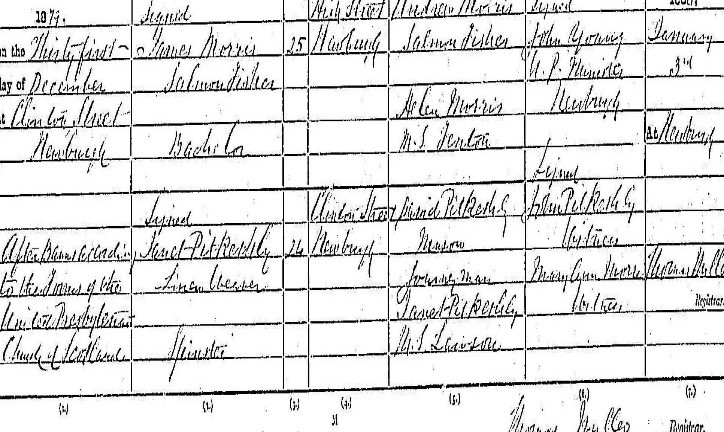 1879.
on the Thirty first
day of December
at Clinton Street
Newburgh
After Banns according
to the Forms of the
United Presbyterian
Church of Scotland
(1.)
Signed
James Morris
Salmon Fisher
Bachelor
Signed
Janet Pitkeshly
Linen Weaver
Spinster
(2.)
25
24
(3.)
High Street
Newburgh
Clinton Street
Newburgh
(4.)
Andrew Morris
Salmon Fisher
Helen Morris
M.S. Fenton
David Pitkeshly
Mason
Journeyman
Janet Pitkeshly
M.S. Lawson
(5.)
Signed
John Young
U.P. Minister
Newburgh
Signed
John Pitkeshly
Witness
Mary Ann Morris
Witness
(6.)
January
3rd
At Newburgh
Thomas Miller
Registrar.
(7.)
Thomas Miller
Registrar.